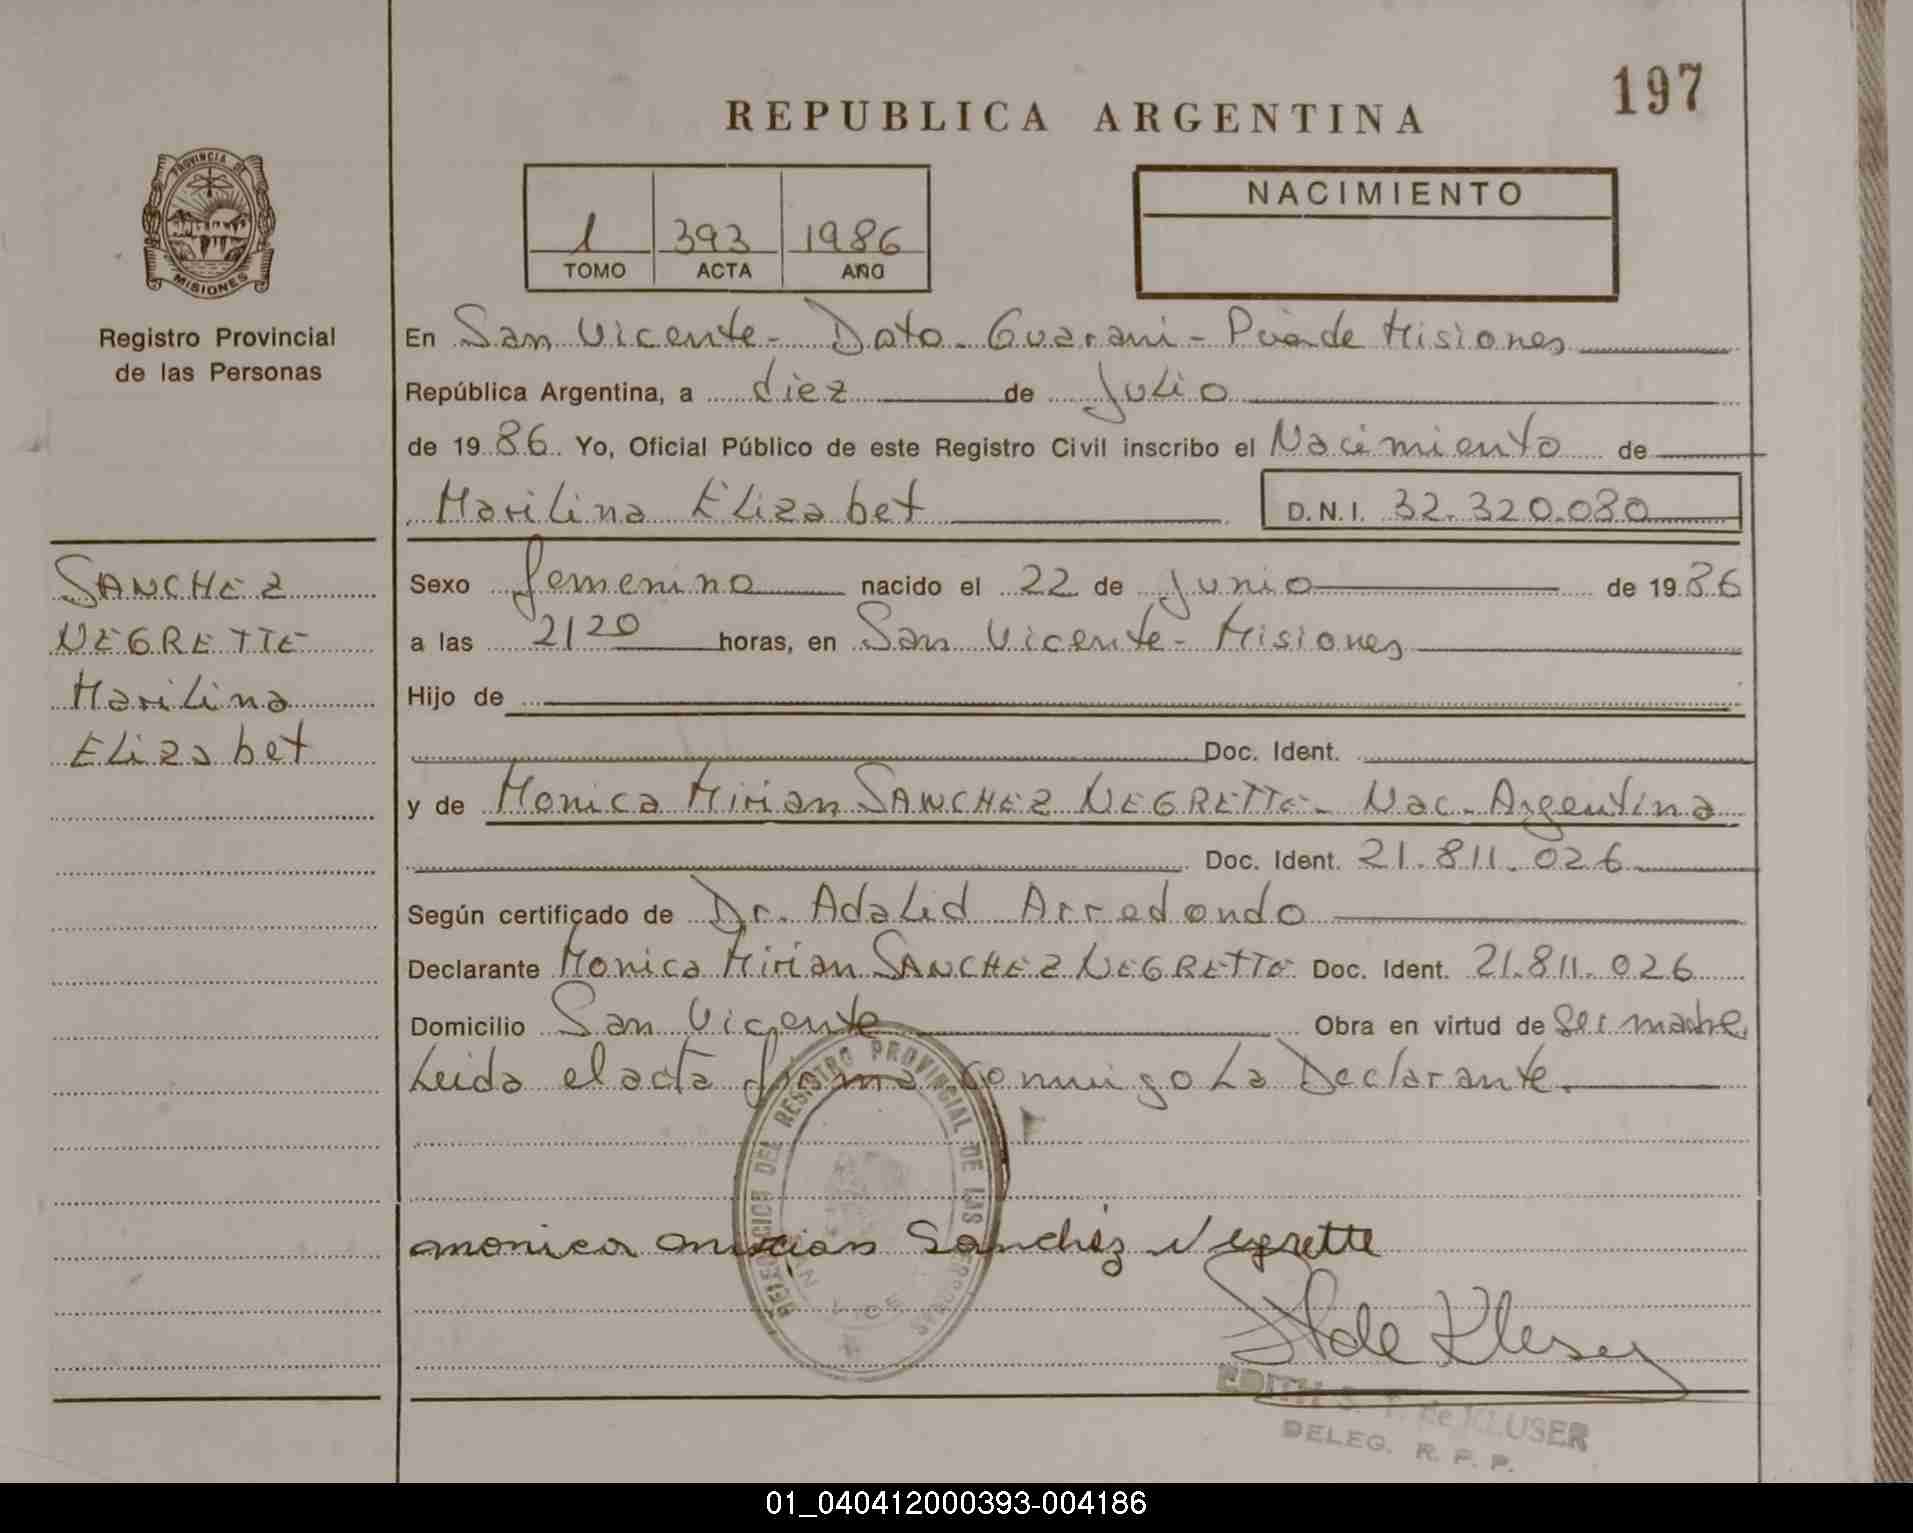 197
REPUBLICA ARGENTINA
PROVINCIA DE
MISIONES
Registro Provincial
de las Personas
1 393 1986
TOMO ACTA AÑO
NACIMIENTO
En San Vicente - Dpto. Guarani - Pcia de Misiones
República Argentina, a diez de Julio
de 1986. Yo, Oficial Público de este Registro Civil inscribo el Nacimiento de
Marilina Elizabet D.N.I. 32.320.080
SANCHEZ
NEGRETTE
Marilina
Elizabet
Sexo femenino nacido el 22 de Junio de 1986
a las 2120 horas, en San Vicente - Misiones
Hijo de
Doc. Ident.
y de Monica Mirian SANCHEZ NEGRETTE - Nac. Argentina
Doc. Ident. 21.811.026
Según certificado de Dr. Adalid Arredondo
Declarante Monica Mirian SANCHEZ NEGRETTE Doc. Ident. 21.811.026
Domicilio San Vicente Obra en virtud de ser madre
Leida el acta firma conmigo la Declarante.
DELEGACION DEL REGISTRO PROVINCIAL DE LAS PERSONAS
monica mirian Sanchez Negrette
de Kluser
EDITH S. T. de KLUSER
DELEG. R. P. P.
01_040412000393-004186